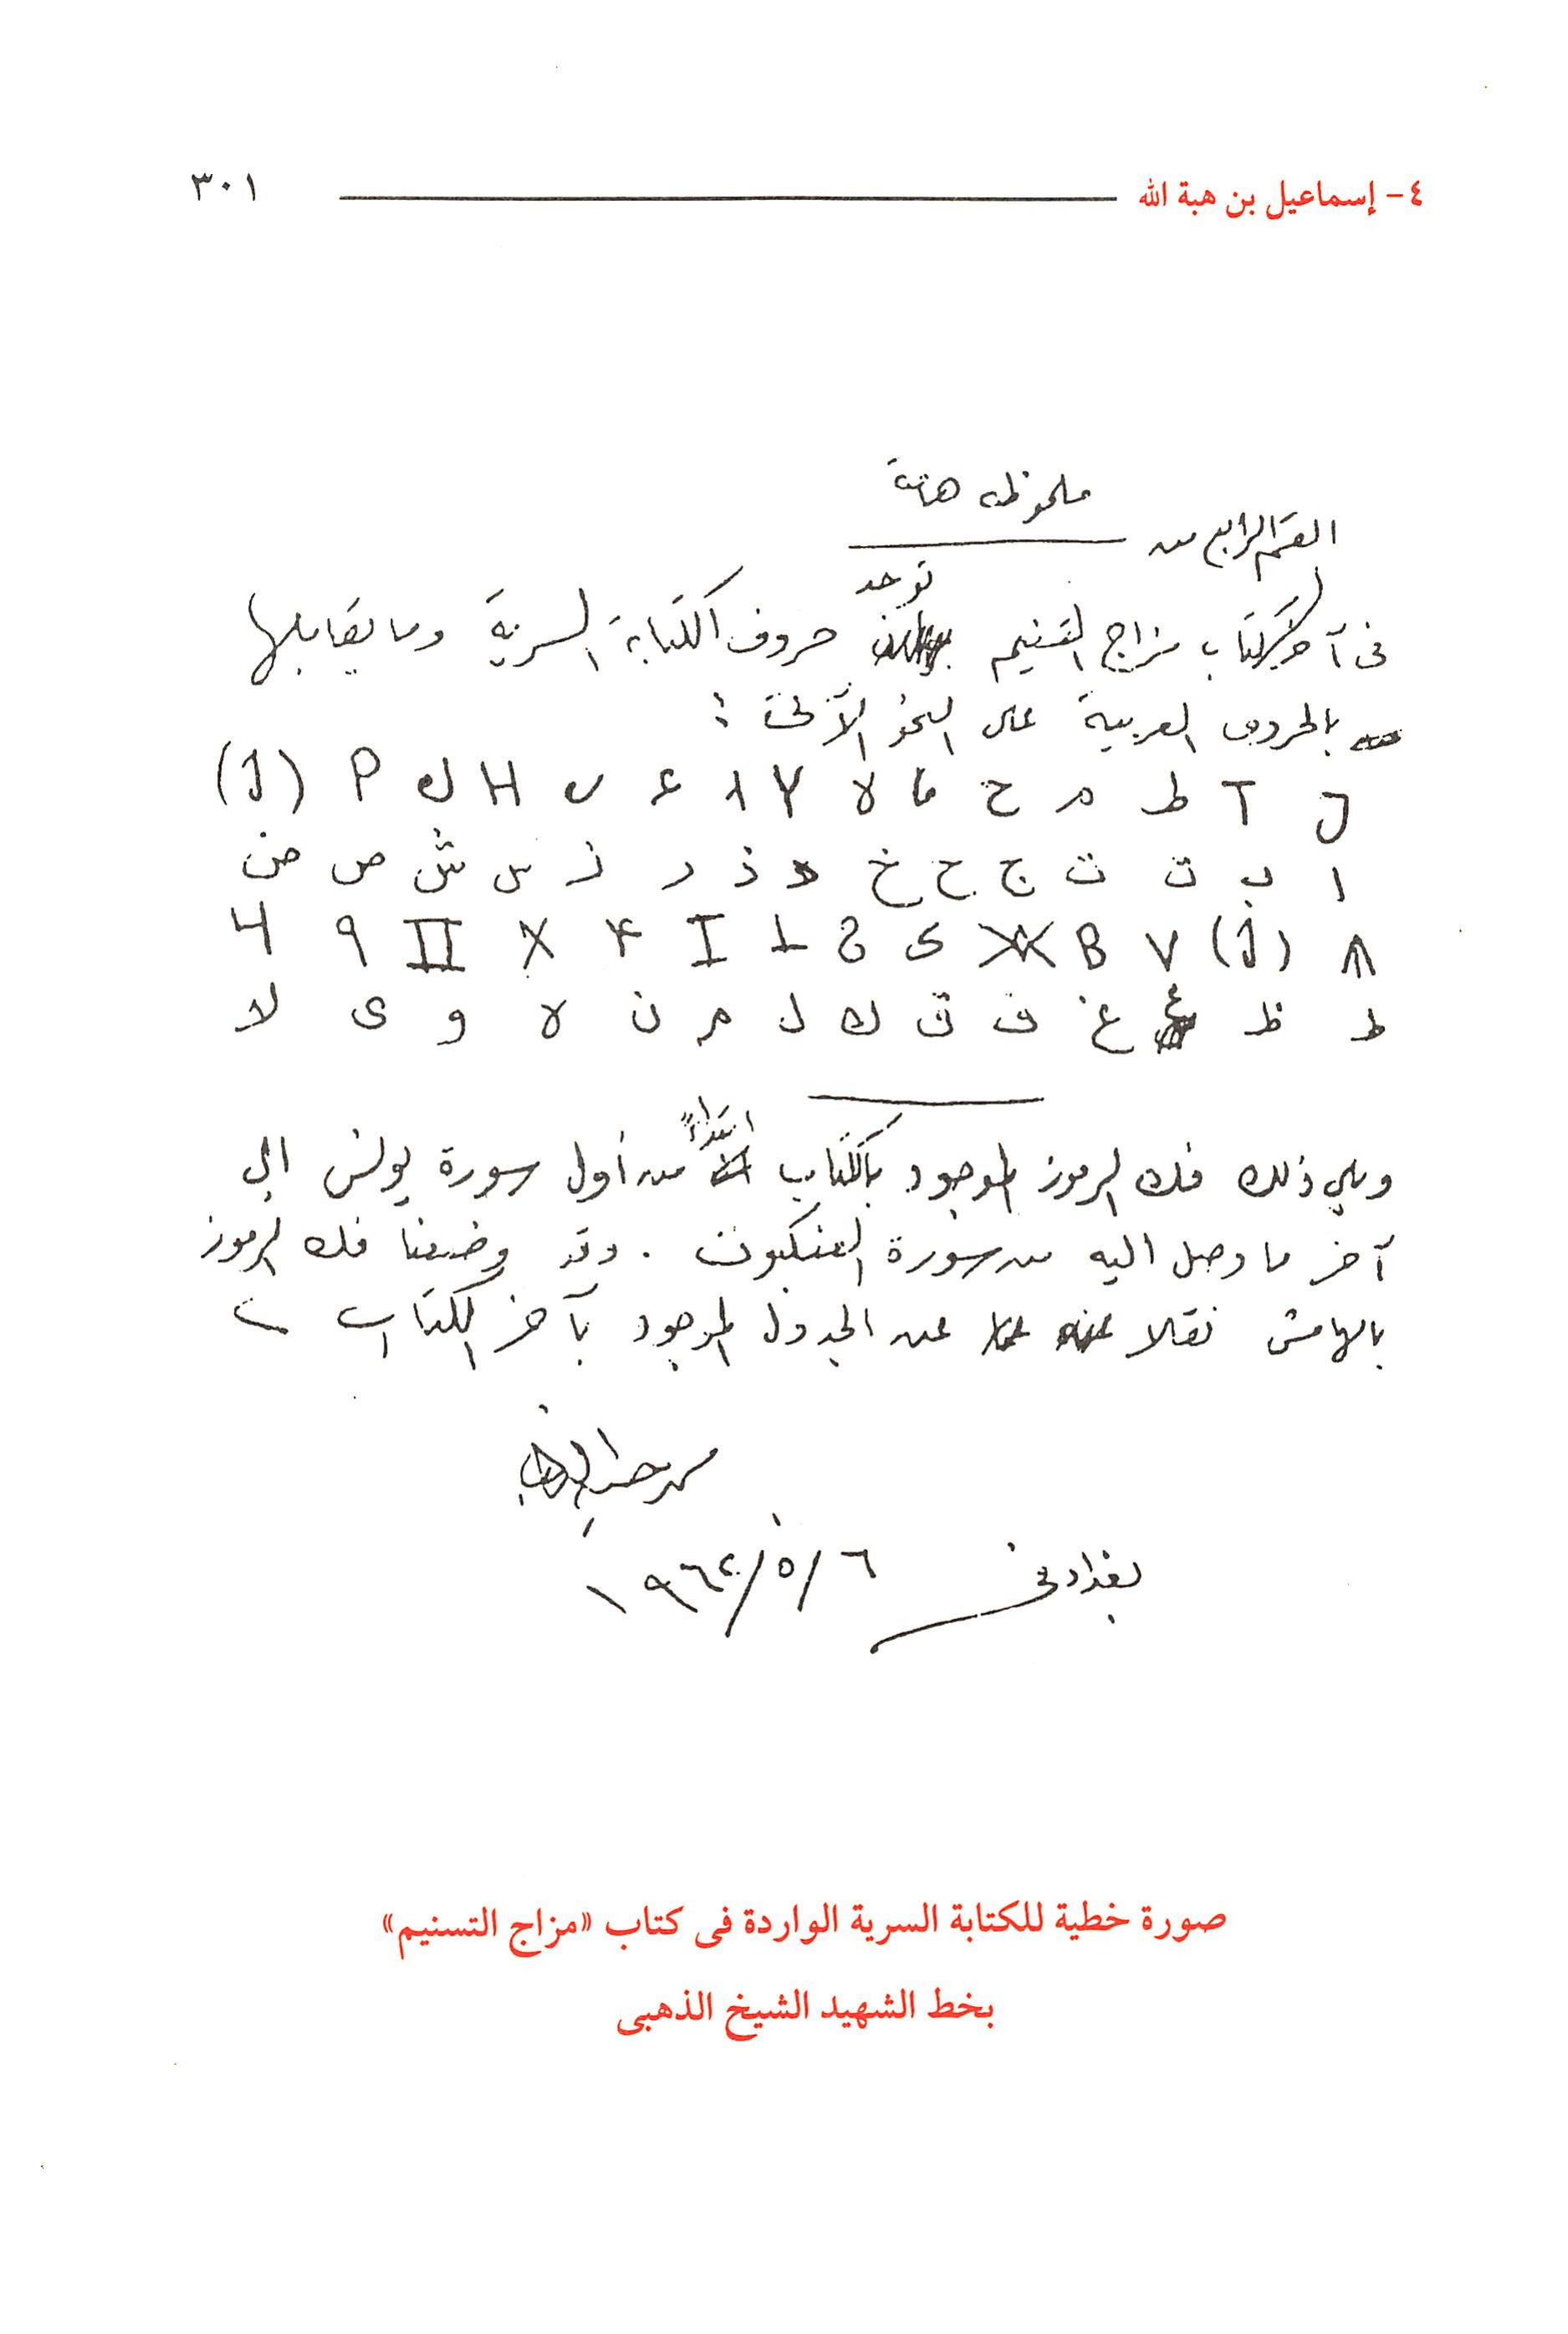 ٤- إسماعيل بن هبة الله ٣٠١
ملحوظه هامة
القسم الرابع من
توجد
فى آخر كتاب مزاج التسنيم حروف الكتابة السرية وما يقابلها
بالحروف العربية على النحو الآتى :
ا ب ت ث ج ح خ د ذ ر ز س ش ص ض
ط ظ ع غ ف ق ك ل م ن ه و ى لا
ابتداءً
ويلى ذلك فك الرموز الموجود بالكتاب من أول سورة يونس الى
آخر ما وصل اليه من سورة العنكبوت . وقد وضعنا فك الرموز
بالهامش نقلا عن الجدول الموجود بآخر الكتاب
بغداد فى ٦/٥/١٩٦٢
صورة خطية للكتابة السرية الواردة فى كتاب «مزاج التسنيم»
بخط الشهيد الشيخ الذهبى